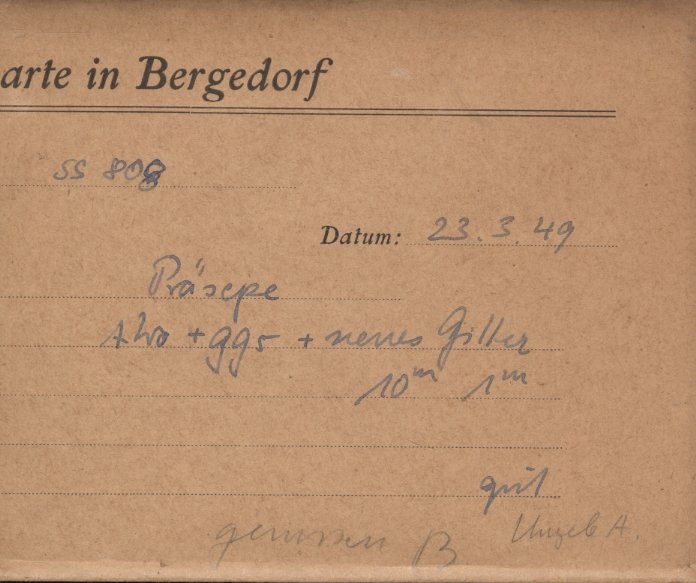 arte in Bergedorf
SS 808
Datum: 23. 3. 49
Präsepe
+ gg5 + neues Gitter
10m 1m
gut
gemessen B